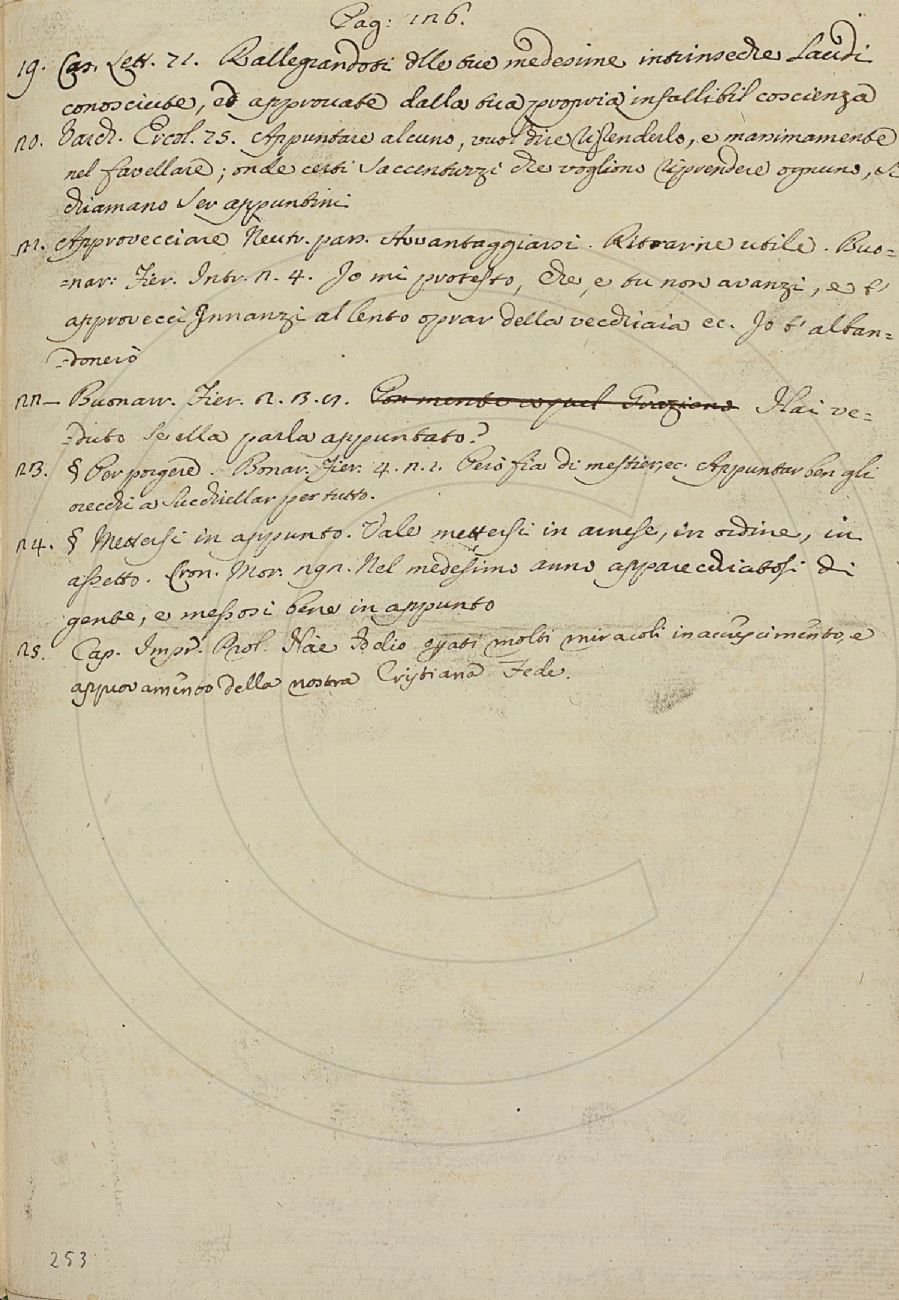 Pag: 126.
19. Cas. Lett. 71. Rallegrandoti dlle tue medesime intrinseche Laudi
conosciute, ed approvate dalla tua propria infallibil coscienza
20. Varch. Ercol. 75. Appuntare alcuno, vuol dire riprenderlo, e massimamente
nel favellare; onde certi Saccentuzzi che vogliono riprendere ognuno, si
chiamano Ser appuntini
21. Approvecciare Neutr. pass. Avvantaggiarsi. Ritrarne utile. Buo=
=nar: Fier. Intr. 2. 4. Io mi protesto, che, e tu non avanzi, e t'
approvecci Innanzi al lento oprar della vecchiaia ec. Io t' abban=
=donerò
22 — Buonarr. Fier. 2. 3. Hai ve=
=duto se ella parla appuntato?
23. § Per porgere. Bonar. Fier. 4. 2. 1. Però fia di mestier, ec. Appuntar ben gli
orecchi a succhiellar per tutto.
24. § Mettersi in appunto. Vale mettersi in arnese, in ordine, in
assetto. Cron. Mor. 292. Nel medesimo anno apparecchiatosi di
gente, e messosi bene in appunto
25. Cap. Impr. Prol. Hae Idio molti miracoli in accrescimento, e
appuovamento della nostra Cristiana Fede.
253